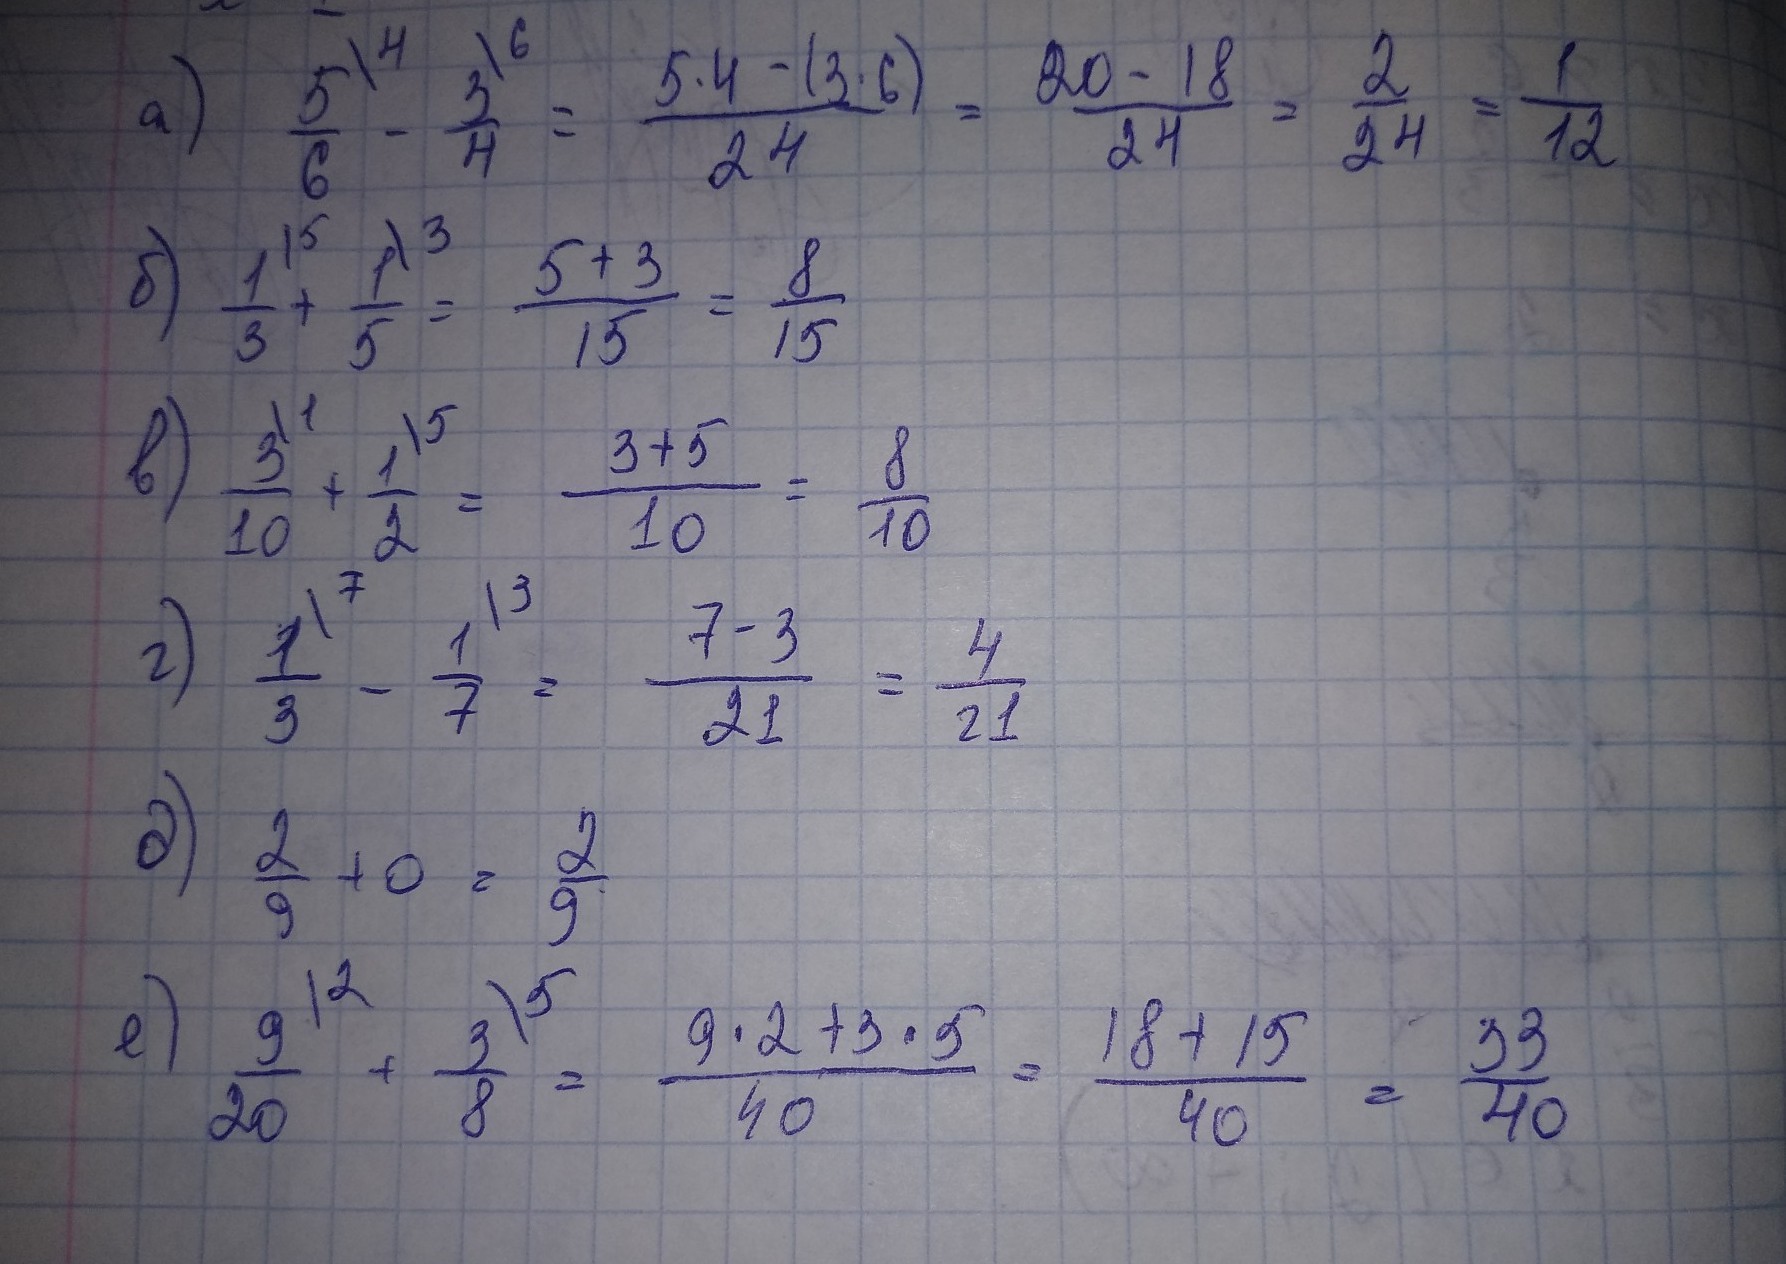 а) 5/6 \4 - 3/4 \6 = 5·4-(3·6)/24 = 20-18/24 = 2/24 = 1/12
б) 1/3 \5 + 1/5 \3 = 5+3/15 = 8/15
в) 3/10 \1 + 1/2 \5 = 3+5/10 = 8/10
г) 1/3 \7 - 1/7 \3 = 7-3/21 = 4/21
д) 2/9 + 0 = 2/9
е) 9/20 \2 + 3/8 \5 = 9·2+3·5/40 = 18+15/40 = 33/40